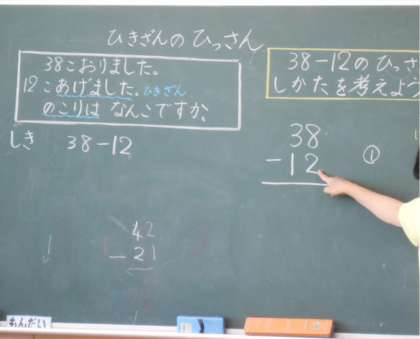 ひきざんの ひっさん
38こおりました。
12こあげました。ひきざん
のこりは なんこですか。
しき 38-12
38-12のひっさ
しかたを考えよう
38
-12
①
42
-21